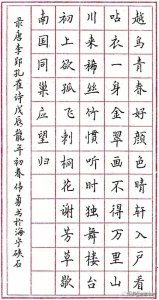 越鸟青春好颜色晴轩入户看
呫衣一身金翠画不得万里山
川来稀丝竹惯听时独舞楼台
初上欲孤飞刺桐花谢芳草歇
南国同巢应望归
录唐李郢孔雀诗戊辰龙年初春伟勇书于海宁硖石